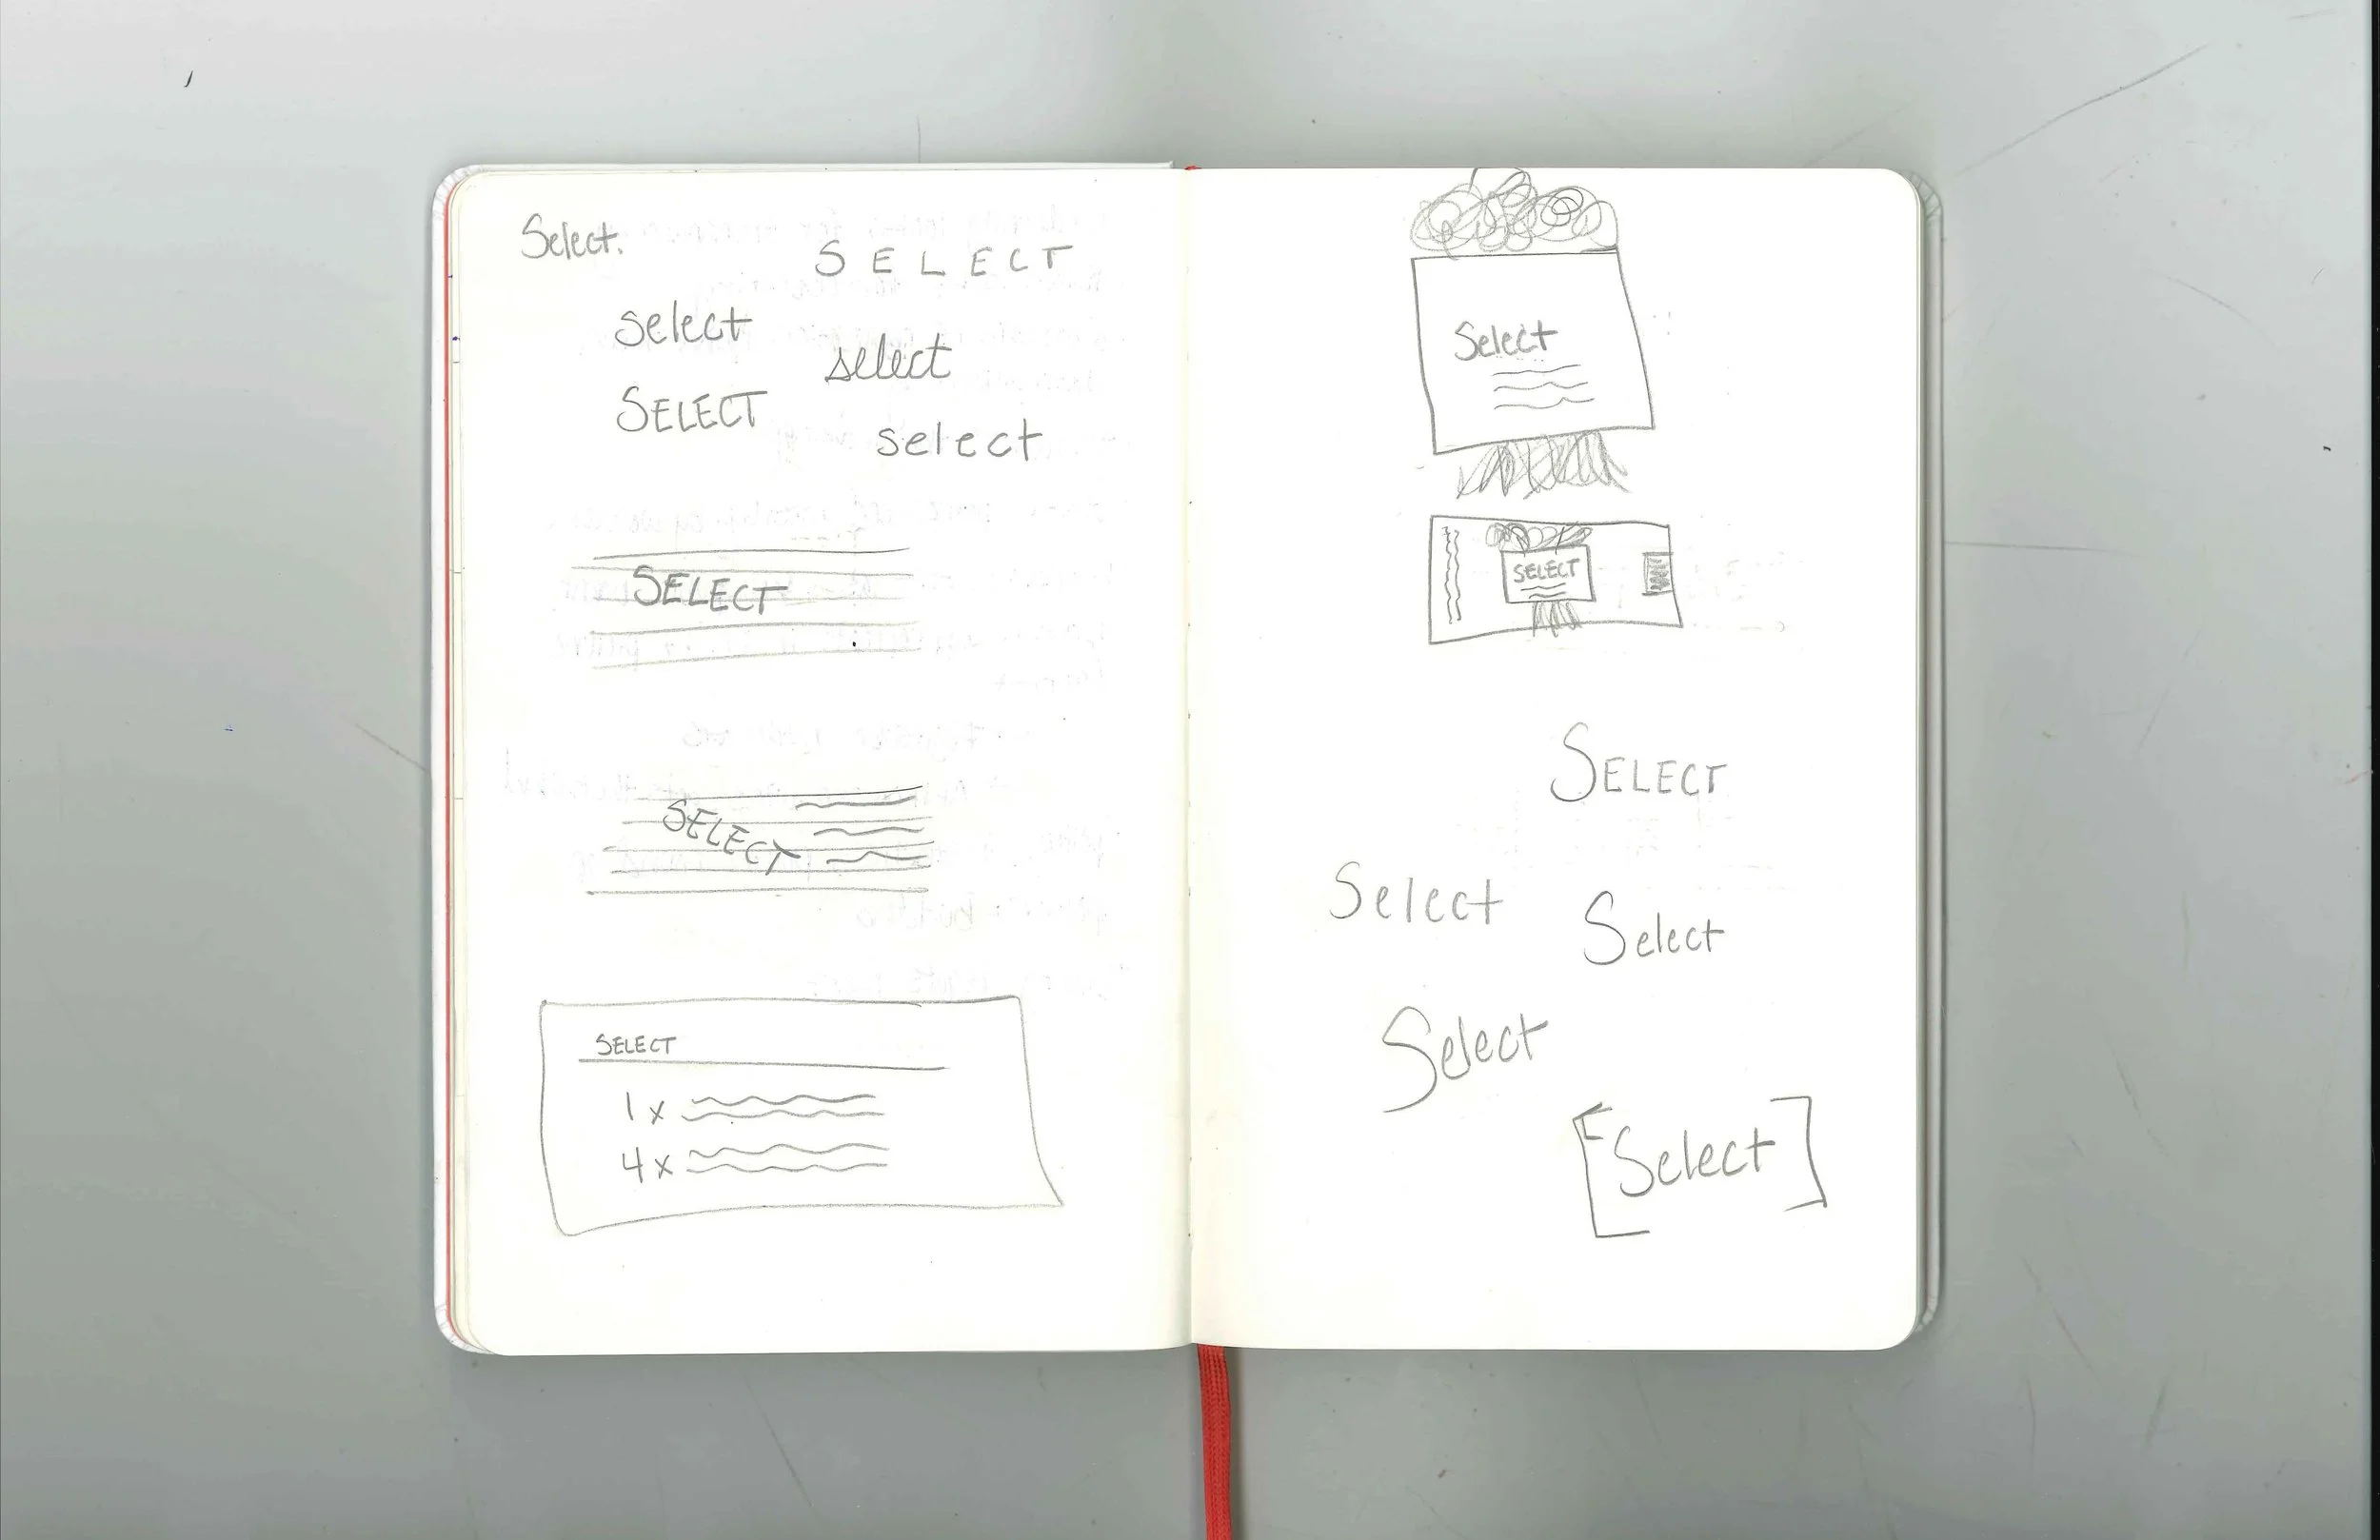 Select.
SELECT
select
select
SELECT
select
SELECT
SELECT
SELECT
1x
4x
Select
SELECT
SELECT
Select
Select
Select
[Select]